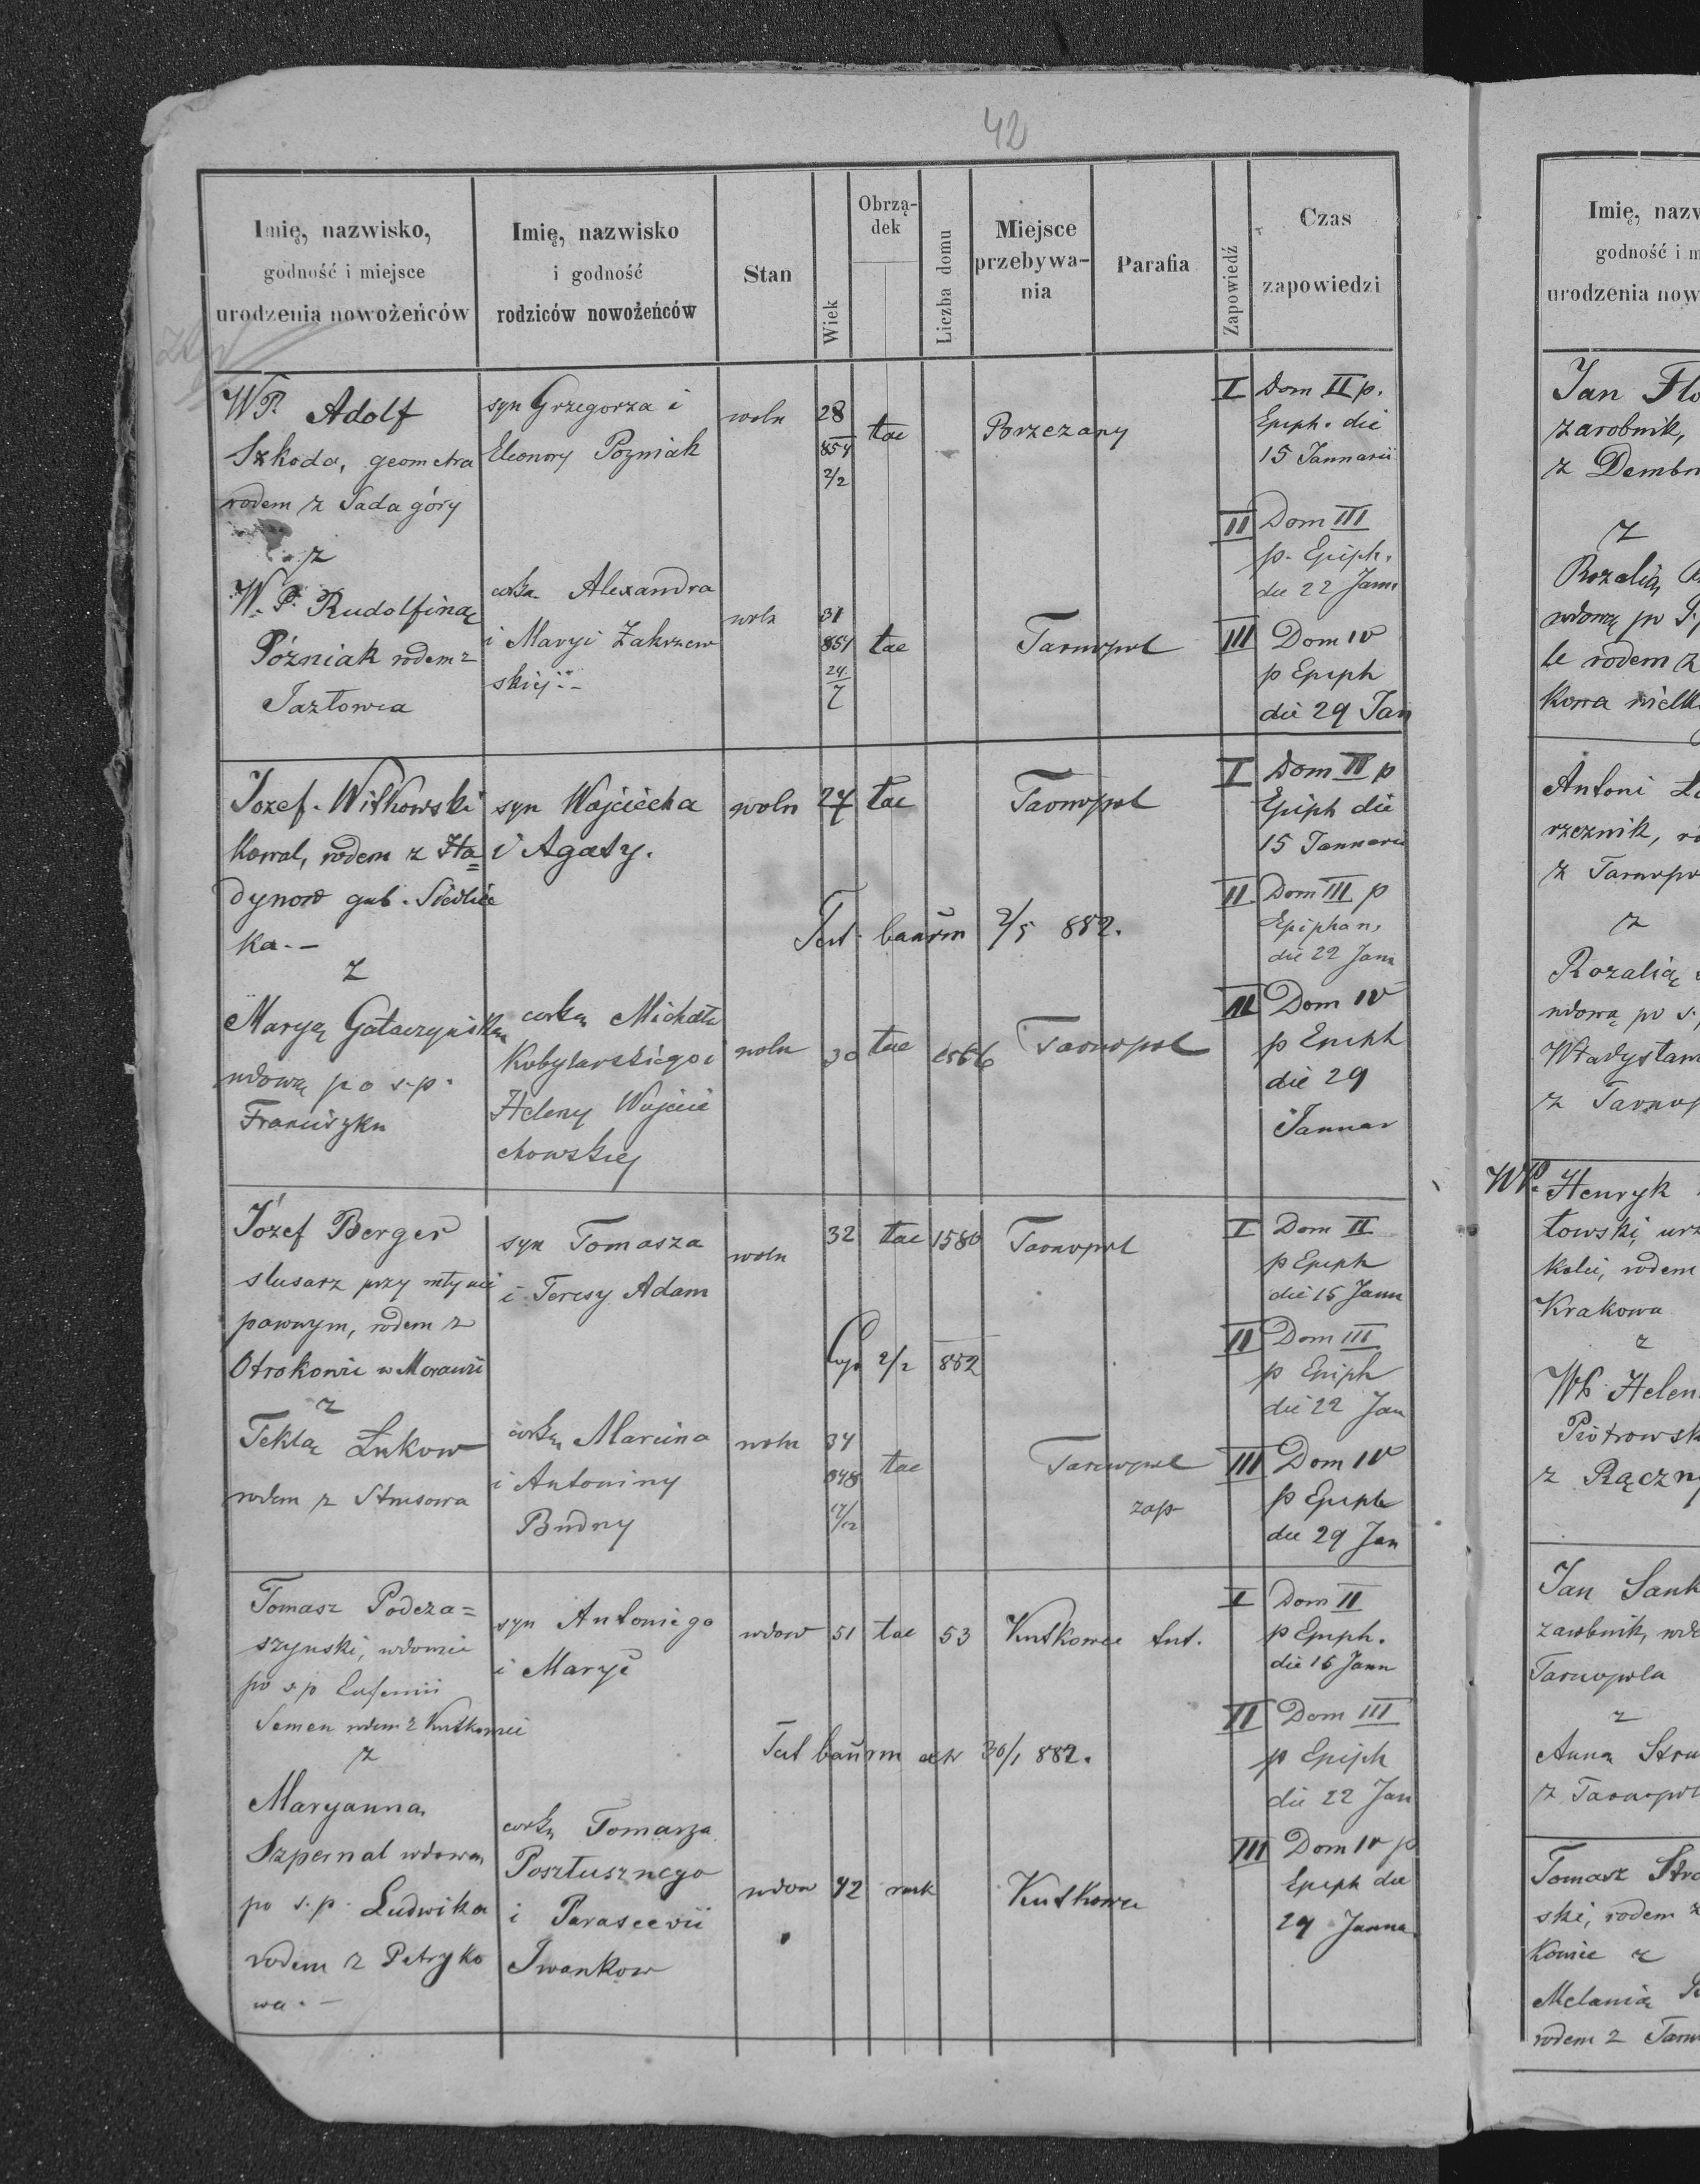 42
Imię, nazwisko,
godność i miejsce
urodzenia nowożeńców
Imię, nazwisko
i godność
rodziców nowożeńców
Stan
Wiek
Obrzą-
dek
Liczba domu
Miejsce
przebywa-
nia
Parafia
Zapowiedź
Czas
zapowiedzi
WP. Adolf
Szkoda, geometra
rodem z Sada góry
z
W. P. Rudolfiną
Póżniak rodem z
Jazłowca
syn Grzegorza i
Eleonory Pozniak
corka Alexandra
i Maryi Zakrzew
skiej
woln
28
854
2/2
tac
Borzezany
woln
31
851
24
7
tac
Tarnopol
I Dom II p.
Epiph. die
15 Jannarii
II Dom III
p. Epiph.
die 22 Jann
III Dom IV
p Epiph
die 29 Jan
Jozef Witkowski
kowal, rodem z Ha=
dynow gub. Siedlec
ka.-
z
Maryą Gołaczyńską
wdową po s.p.
Franciszku
syn Wojciecha
i Agaty.
corką Michała
Kobylarskiego i
Heleny Wojcie
chowskiej
woln 27 tac Tarnopol
Test. bannm 2/5 882.
woln 30 tac 1566 Tarnopol
I Dom II p
Epiph die
15 Jannarii
II Dom III p
Epiphan.
die 22 Jann
III Dom IV
p Epiph
die 29
Jannar
Józef Berger
slusarz przy młynie
parowym, rodem z
Otrokowic w Morawii
z
Teklą Lukow
rodem z Strusowa
syn Tomasza
i Teresy Adam
corką Marcina
i Antoniny
Budny
woln 32 tac 1580 Tarnopol
Cop 2/2 882
woln 34
848
17/12
tac Tarnopol
zap
I Dom II
p Epiph
die 15 Jann
II Dom III
p Epiph
die 22 Jan
III Dom IV
p Epiph
die 29 Jan
Tomasz Podcza=
szynski, wdowiec
po s.p Eufemii
Semen rodem z Kutkowiec
z
Maryanna
Szpernal wdowa
po s.p. Ludwika
rodem z Petryko
wa.-
syn Antoniego
i Maryi
corką Tomasza
Posztusznego
i Parascevii
Iwankow
wdow 51 tac 53 Kutkowce tut.
Test bannm 30/1 882.
wdow 42 rusk Kutkowce
I Dom II
p Epiph.
die 15 Jann
II Dom III
p Epiph
die 22 Jan
III Dom IV p
Epiph die
29 Janna
Imię, nazw
godność i m
urodzenia now
Jan Flo
zarobnik,
z Dembn
z
Rozalią
wdową po
le rodem z
kowa wielk
Antoni
rzeznik,
z Tarnopo
z
Rozalią
wdową po s.
Władysław
z Tarnop
WP. Henryk
łowski, urz
kolei, rodem
Krakowa
z
WP Helen
Piotrowsk
z Rączny
Jan Sank
zarobnik, wdo
Tarnopola
z
Anną Stru
z Tarnopol
Tomasz Stro
ski, rodem z
kowiec z
Melanią
rodem z Tarn